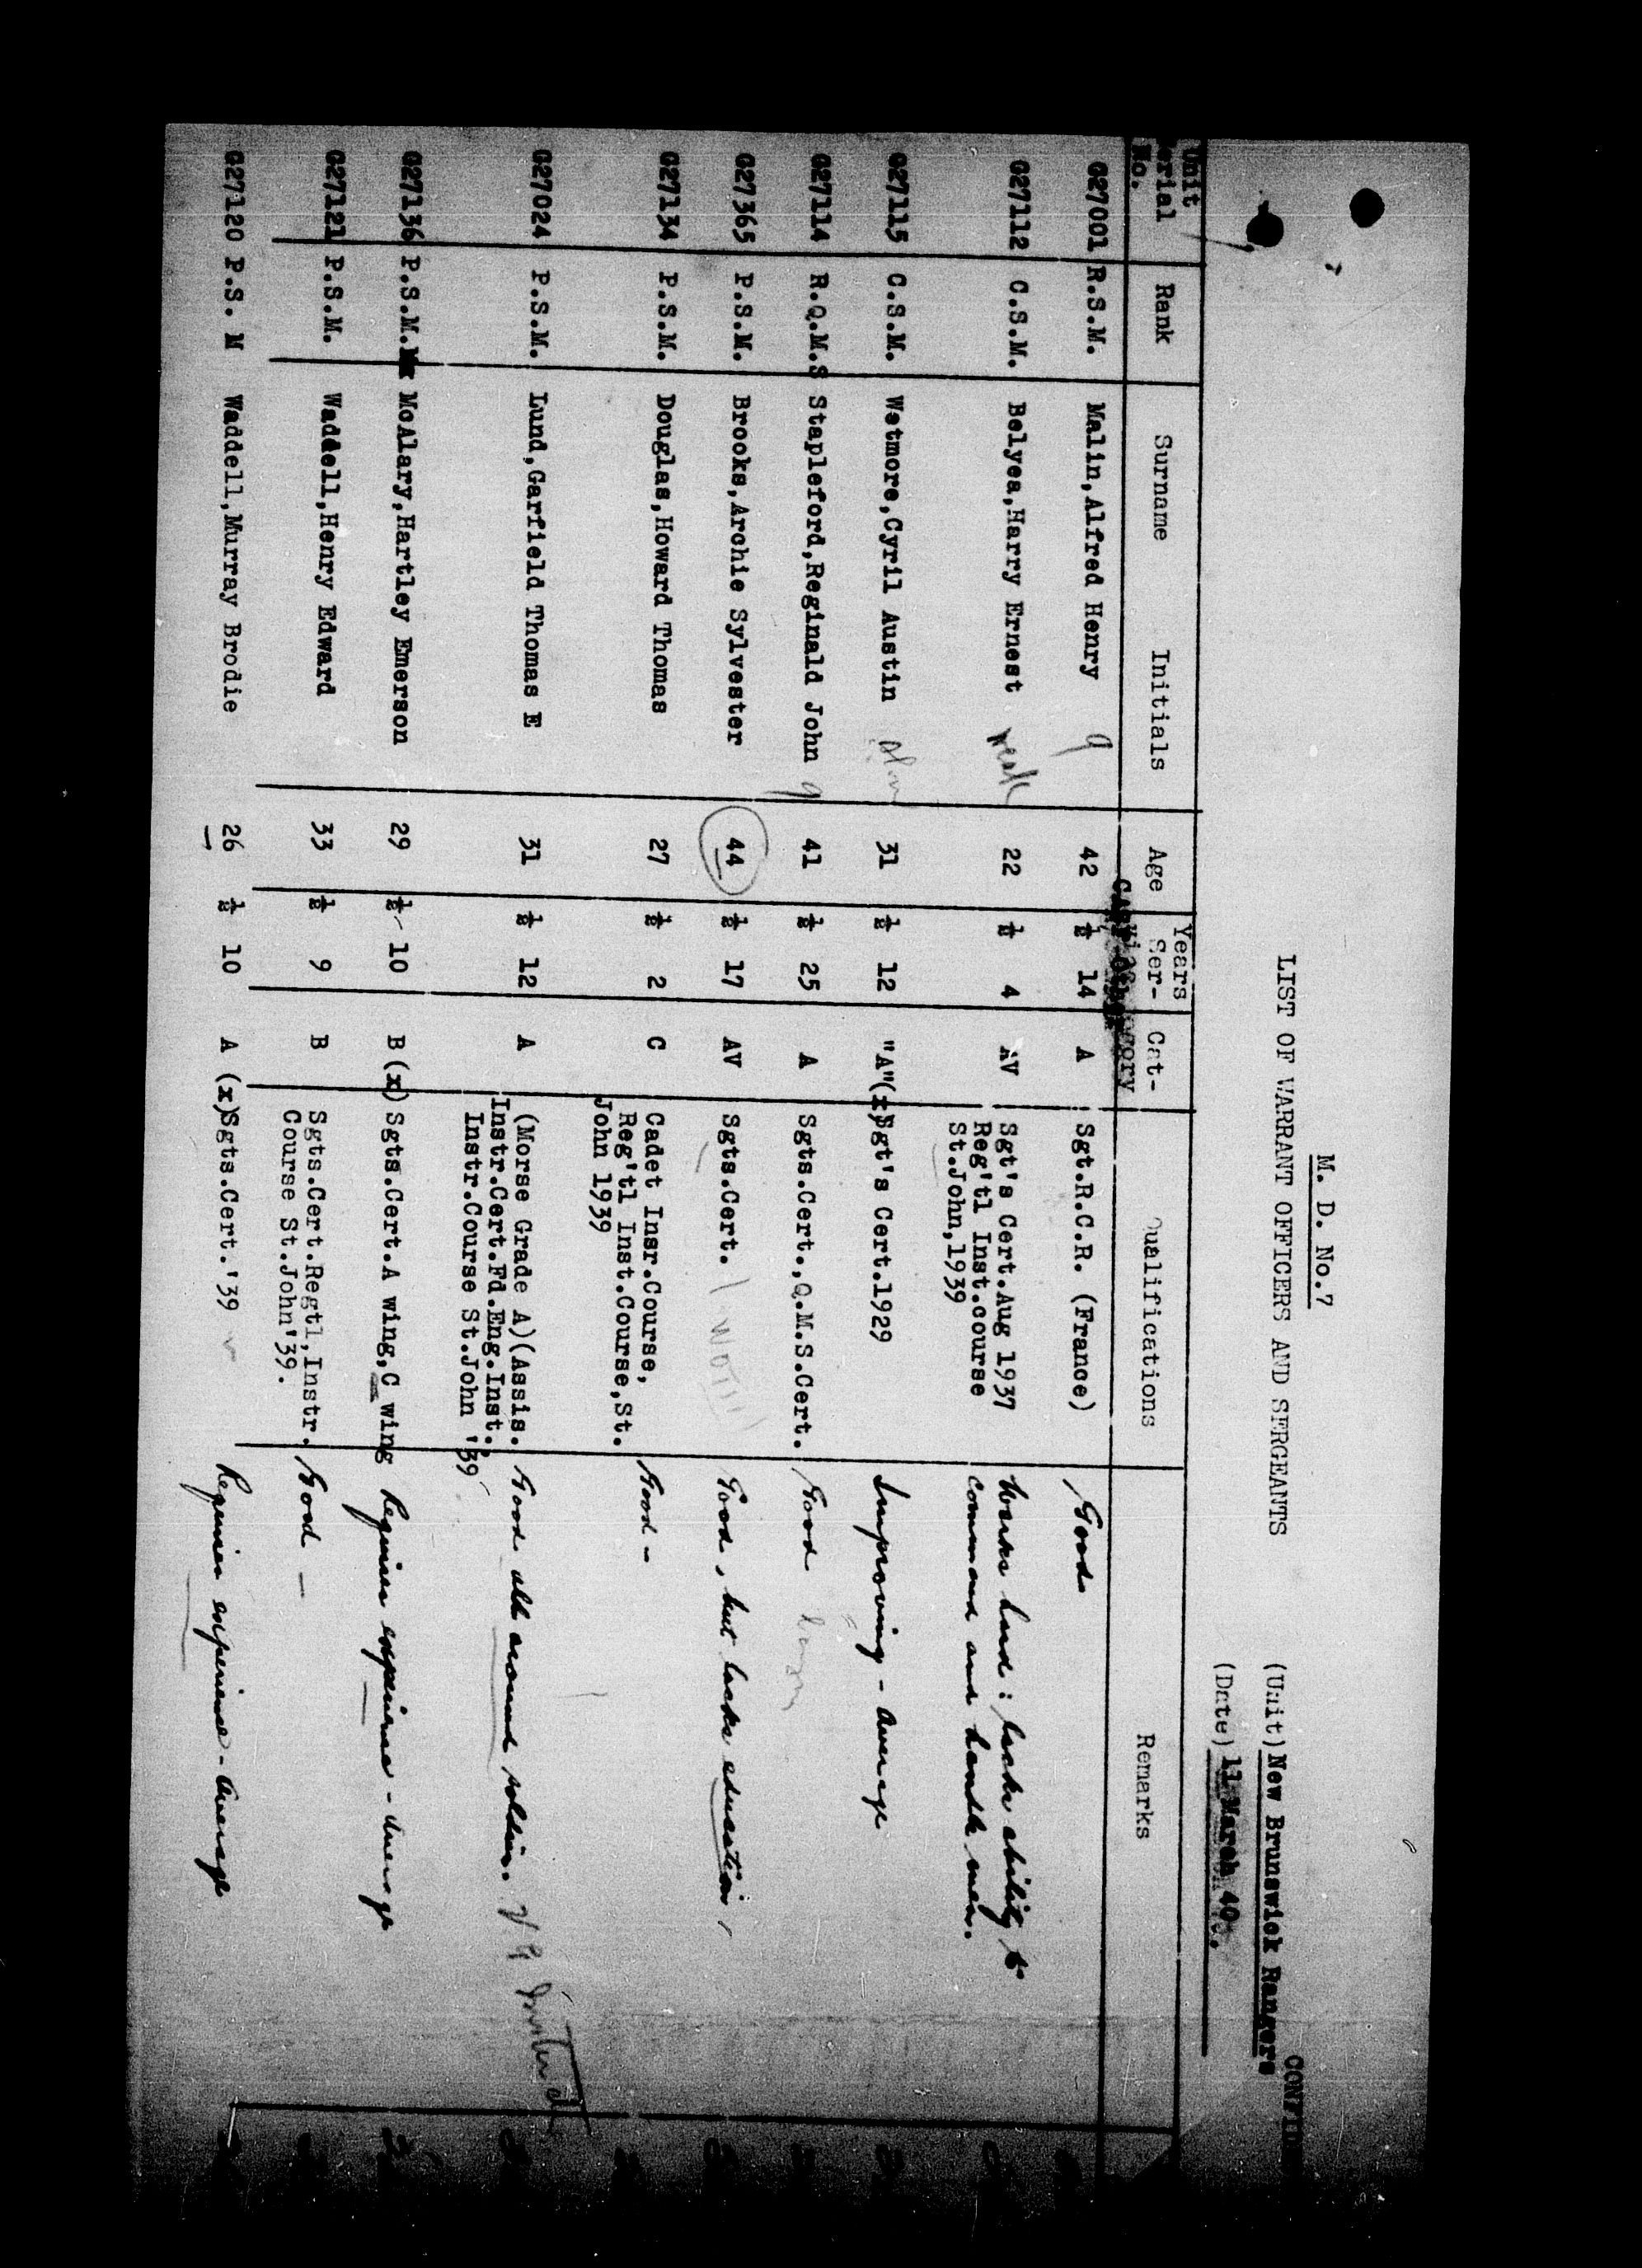 M. D. No.7
LIST OF WARRANT OFFICERS AND SERGEANTS
CONFID
(Unit) New Brunswick Rangers
(Date) 11 March 40.
Unit Rank Surname Initials Age Years Cat- Qualifications Remarks
erial Ser- egory
No. CASF Other
G27001 R.S.M. Malin,Alfred Henry 42 ½ 14 A Sgt.R.C.R. (France) Good
G27112 C.S.M. Belyea,Harry Ernest weak 22 ½ 4 AV Sgt's Cert.Aug 1937 Works hard: lacks ability to
Reg'tl Inst.course command and handle men.
St.John,1939
G27115 C.S.M. Wetmore,Cyril Austin slow 31 ½ 12 "A"(x) Sgt's Cert.1929 Improving - Average
G27114 R.Q.M.S Stapleford,Reginald John 41 ½ 25 A Sgts.Cert.,Q.M.S.Cert. Good
G27365 P.S.M. Brooks,Archie Sylvester 44 ½ 17 AV Sgts.Cert. Good, but lacks education,
G27134 P.S.M. Douglas,Howard Thomas 27 ½ 2 C Cadet Insr.Course, Good -
Reg'tl Inst.Course,St.
John 1939
G27024 P.S.M. Lund,Garfield Thomas E 31 ½ 12 A (Morse Grade A)(Assis. Good all around soldier.
Instr.Cert.Fd.Eng.Inst.,
Instr.Course St.John '39
G27136 P.S.M. McAlary,Hartley Emerson 29 ½ 10 B (x) Sgts.Cert.A wing,C wing Requires experience - Average
G27121 P.S.M. Waddell,Henry Edward 33 ½ 9 B Sgts.Cert.Regtl,Instr. Good -
Course St.John'39.
G27120 P.S. M Waddell,Murray Brodie 26 ½ 10 A (x) Sgts.Cert.'39 Requires experience - Average